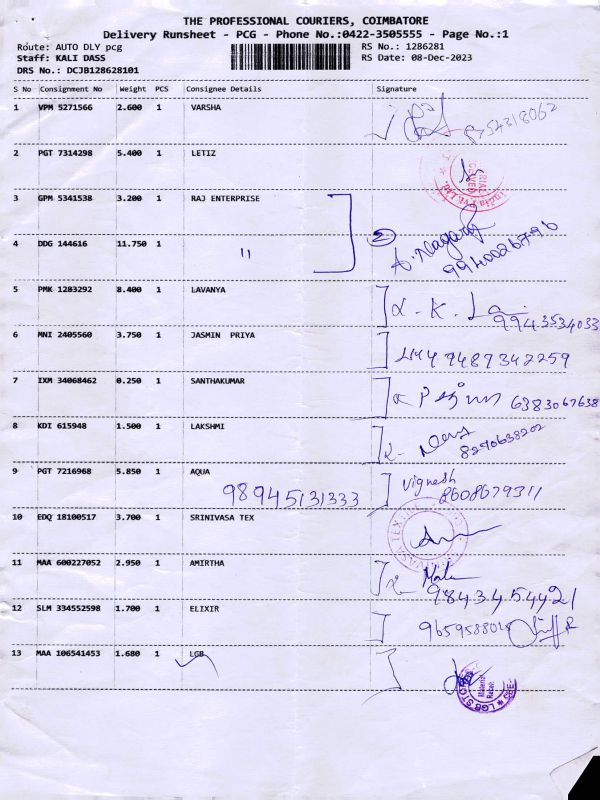 THE PROFESSIONAL COURIERS, COIMBATORE
Delivery Runsheet - PCG - Phone No.:0422-3505555 - Page No.:1
Route: AUTO DLY pcg RS No.: 1286281
Staff: KALI DASS RS Date: 08-Dec-2023
DRS No.: DCJB128628101
S No Consignment No Weight PCS Consignee Details Signature
1 VPM 5271566 2.600 1 VARSHA
2 PGT 7314298 5.400 1 LETIZ
3 GPM 5341538 3.200 1 RAJ ENTERPRISE
4 DDG 144616 11.750 1 "
9940026796
5 PMK 1283292 8.400 1 LAVANYA
9943534033
6 MNI 2405560 3.750 1 JASMIN PRIYA 9489342259
7 IXM 34068462 0.250 1 SANTHAKUMAR 6383067638
8 KDI 615948 1.500 1 LAKSHMI
8270638202
9 PGT 7216968 5.850 1 AQUA Vignesh
98945131333 8608679311
10 EDQ 18100517 3.700 1 SRINIVASA TEX
11 MAA 600227052 2.950 1 AMIRTHA
9843454421
12 SLM 334552598 1.700 1 ELIXIR
13 MAA 106541453 1.680 1 LGB
LGB STORES